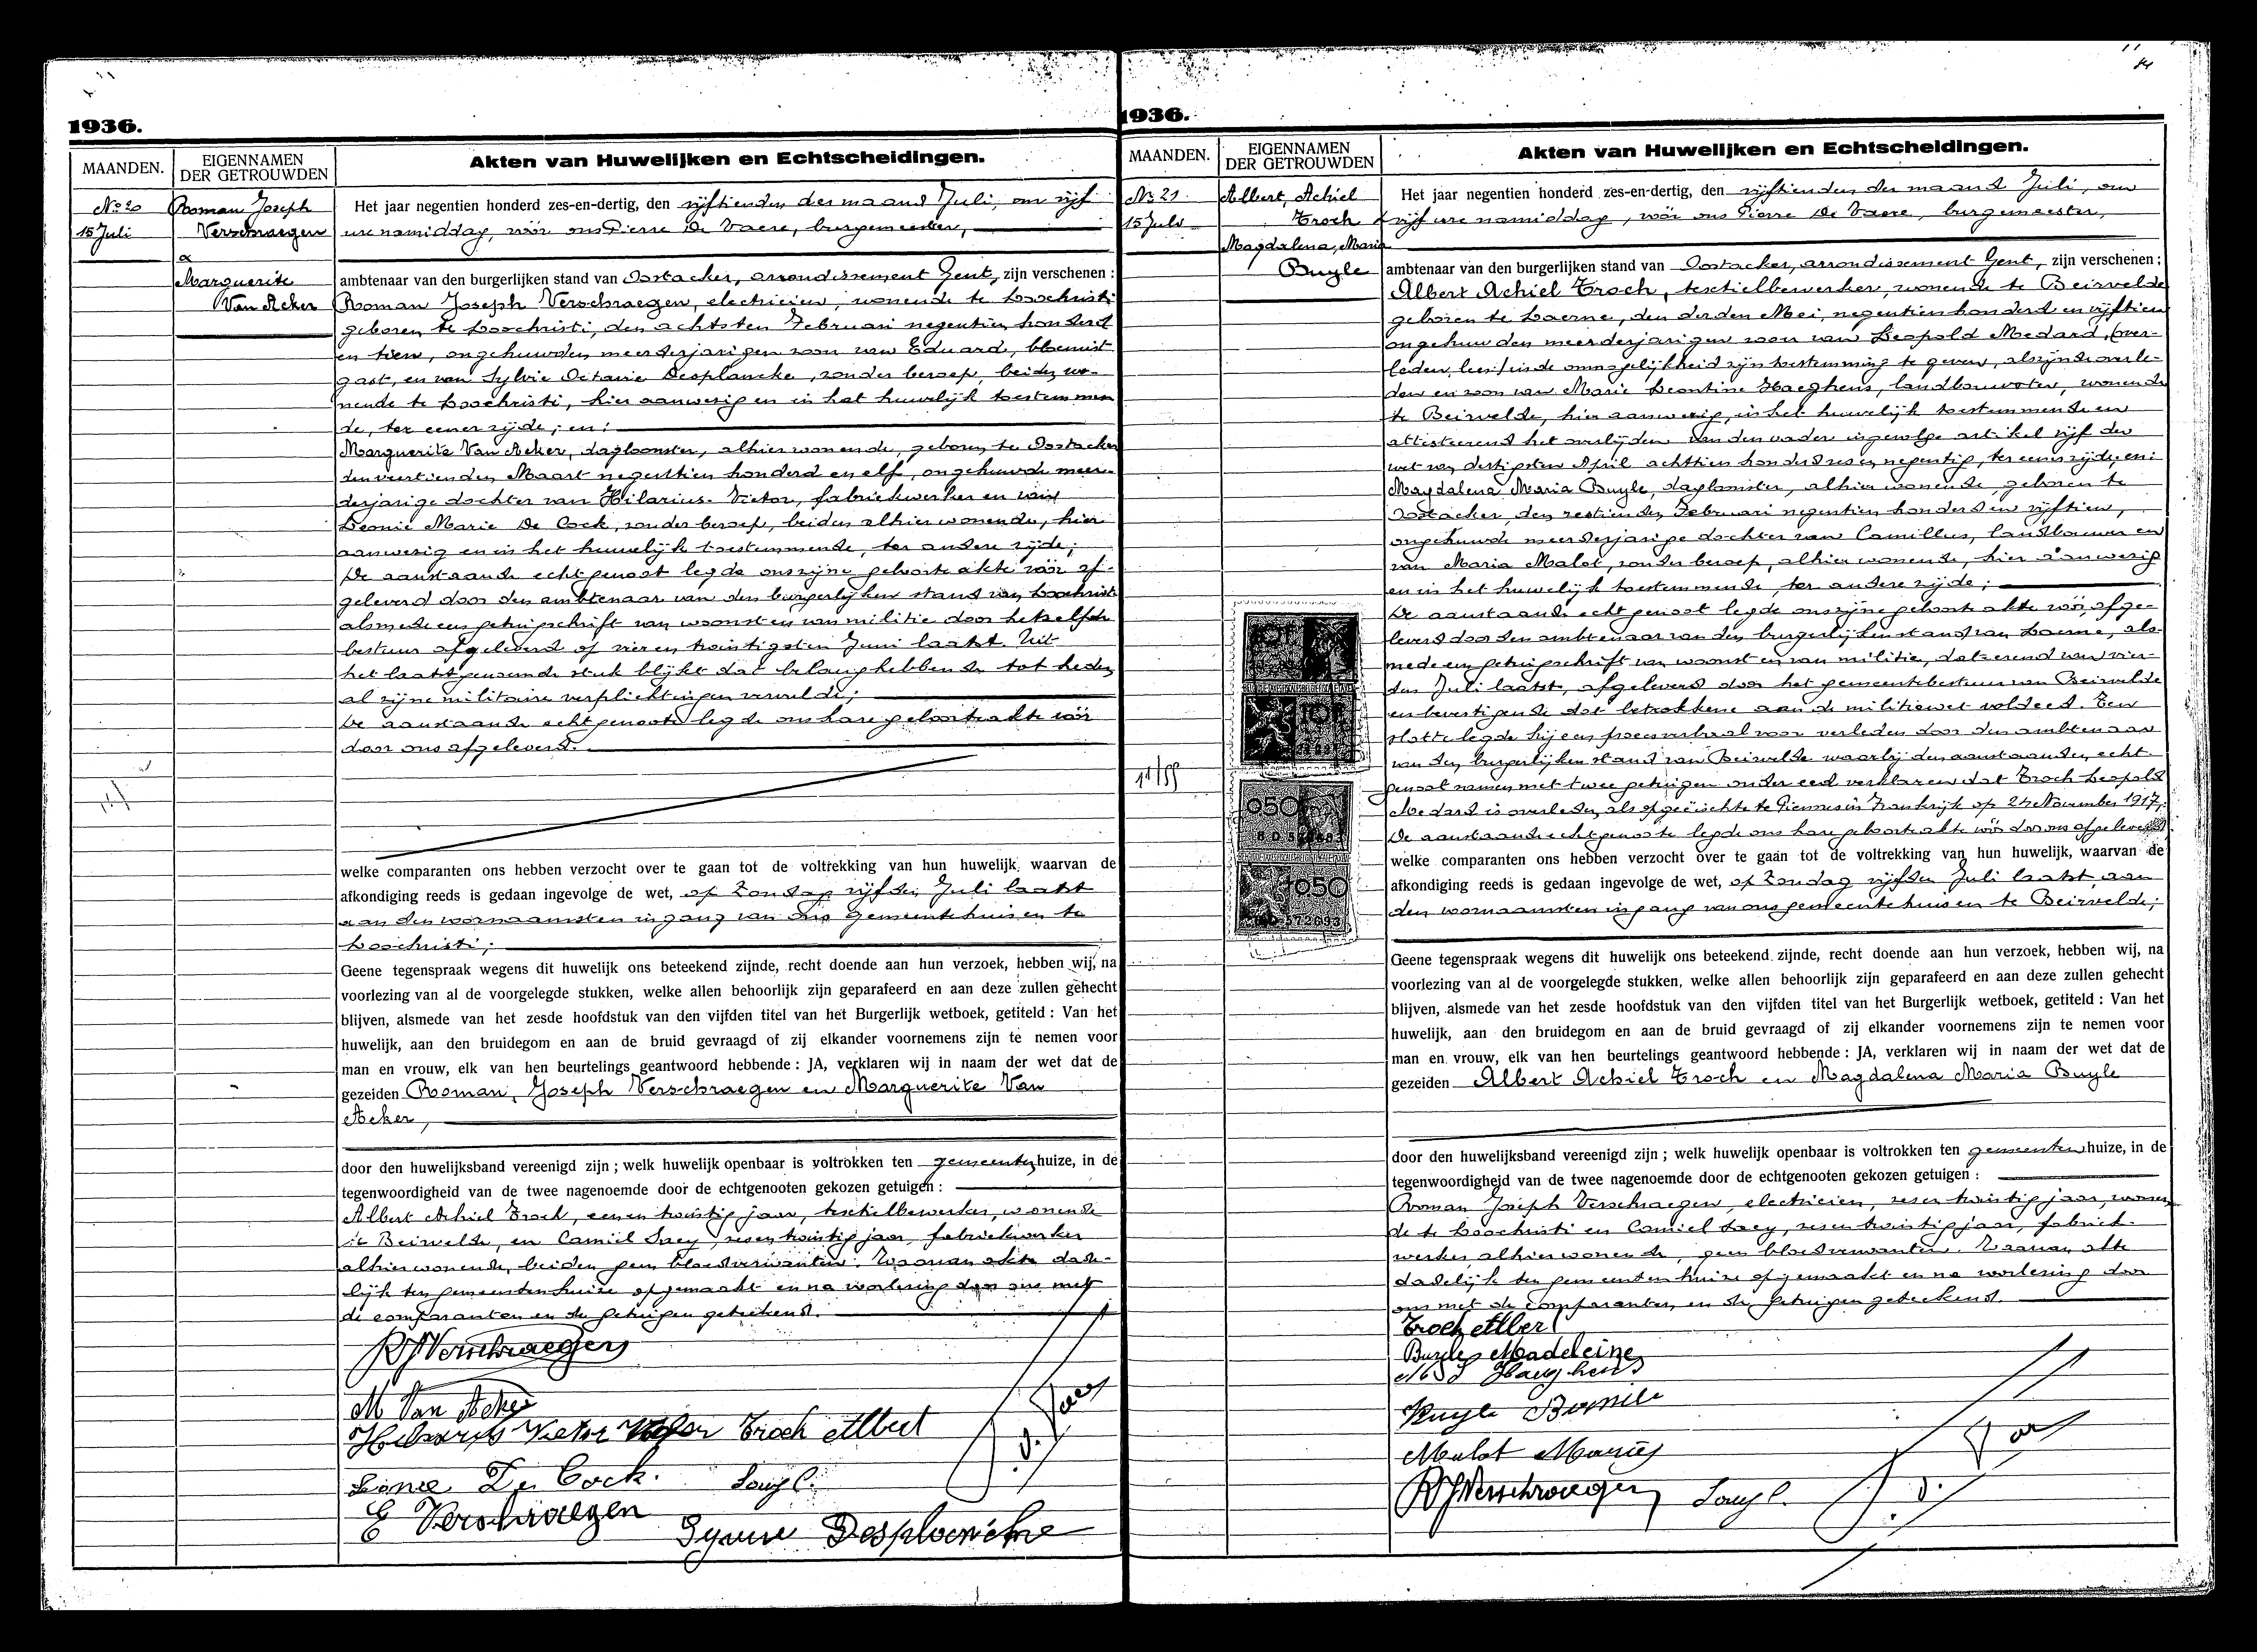 1936.
MAANDEN.
EIGENNAMEN
DER GETROUWDEN
Akten van Huwelijken en Echtscheidingen.
No 20
15 Juli
Roman Joseph
Verschraegen
&
Marguerite
Van Acker
Het jaar negentien honderd zes-en-dertig, den vijftienden der maand Juli, om vijf
ure namiddag, vóór ons Pierre De Vaere, burgemeester,
ambtenaar van den burgerlijken stand van Oostacker, arrondissement Gent, zijn verschenen :
Roman Joseph Verschraegen, electricien, wonende te Loochristi
geboren te Loochristi, den achtsten Februari negentien honderd
en tien, ongehuwden meerderjarigen zoon van Eduard, bloemist
gast, en van Sylvie Octavie Desplancke, zonder beroep, beiden wo-
nende te Loochristi, hier aanwezig en in het huwelijk toestemmen
de, ter eener zijde; en:
Marguerite Van Acker, dagloonster, alhier wonende, geboren te Oostacker
den veertienden Maart negentien honderd en elf, ongehuwde meer-
derjarige dochter van Hilarius-Victor, fabriekwerker en van
Leonie Marie De Cock, zonder beroep, beiden alhier wonende, hier
aanwezig en in het huwelijk toestemmende, ter andere zijde;
De aanstaande echtgenoot legde ons zijne geboorte akte vóór af-
geleverd door den ambtenaar van den burgerlijken stand van Loochristi
alsmede een getuigschrift van woonst en van militie door hetzelfde
bestuur afgeleverd op vier en twintigsten Juni laatst. Uit
het laatstgenoemde stuk blijkt dat belanghebbende tot heden
al zijne militaire verplichtingen vervulde;
De aanstaande echtgenoote legde ons hare geboorteakte vóór
door ons afgeleverd.
welke comparanten ons hebben verzocht over te gaan tot de voltrekking van hun huwelijk, waarvan de
afkondiging reeds is gedaan ingevolge de wet, op Zondag vijfden Juli laatst
aan den voornaamsten ingang van ons gemeentehuis en te
Loochristi;
Geene tegenspraak wegens dit huwelijk ons beteekend zijnde, recht doende aan hun verzoek, hebben wij, na
voorlezing van al de voorgelegde stukken, welke allen behoorlijk zijn geparafeerd en aan deze zullen gehecht
blijven, alsmede van het zesde hoofdstuk van den vijfden titel van het Burgerlijk wetboek, getiteld : Van het
huwelijk, aan den bruidegom en aan de bruid gevraagd of zij elkander voornemens zijn te nemen voor
man en vrouw, elk van hen beurtelings geantwoord hebbende : JA, verklaren wij in naam der wet dat de
gezeiden Roman, Joseph Verschraegen en Marguerite Van
Acker,
door den huwelijksband vereenigd zijn ; welk huwelijk openbaar is voltrokken ten gemeentenhuize, in de
tegenwoordigheid van de twee nagenoemde door de echtgenooten gekozen getuigen :
Albert Achiel Troch, een en twintig jaar, textielbewerker, wonende
te Beirvelde, en Camiel Saey, zes en twintig jaar, fabriekwerker
alhier wonende, beiden geen bloedverwanten. Waarvan akte dade-
lijk ten gemeentenhuize opgemaakt en na voorlezing door ons met
de comparanten en de getuigen geteekend.
RJVerschraegen
M Van Acker
Victor Troch Albert
De Cock. Saey C.
E Verschraegen
Desplancke
1936.
MAANDEN.
EIGENNAMEN
DER GETROUWDEN
Akten van Huwelijken en Echtscheidingen.
No 21
15 Juli
Albert, Achiel
Troch &
Magdalena, Maria
Buyle
Het jaar negentien honderd zes-en-dertig, den vijftienden der maand Juli, om
vijf ure namiddag, vóór ons Pierre De Vaere, burgemeester,
ambtenaar van den burgerlijken stand van Oostacker, arrondissement Gent, zijn verschenen ;
Albert Achiel Troch, textielbewerker, wonende te Beirvelde
geboren te Laerne, den derden Mei, negentien honderd en vijftien
ongehuwden meerderjarigen zoon van Leopold Medard, (over-
leden, lees) in de onmogelijkheid zijn toestemming te geven, alzijnde overle-
den en zoon van Marie Leontine Haeghens, landbouwster, wonende
te Beirvelde, hier aanwezig, in het huwelijk toestemmende en
attesteerend het overlijden van den vader ingevolge artikel vijf der
wet van dertigsten April achttien honderd zes en negentig, ter eener zijde, en:
Magdalena Maria Buyle, dagloonster, alhier wonende, geboren te
Oostacker, den zestienden Februari negentien honderd en vijftien,
ongehuwde meerderjarige dochter van Camillus, landbouwer en
van Maria Malot, zonder beroep, alhier wonende, hier aanwezig
en in het huwelijk toestemmende, ter andere zijde;
De aanstaande echtgenoot legde ons zijne geboorte akte vóór, afge-
leverd door den ambtenaar van den burgerlijken stand van Laerne, als-
mede een getuigschrift van woonst en van militie, dateerend van vier-
den Juli laatst, afgeleverd door het gemeentebestuur van Beirvelde
en bevestigende dat betrokkene aan de militiewet voldeed. Ten
slotte legde hij een procesverbaal voor verleden door den ambtenaar
van den burgerlijken stand van Beirvelde waarbij den aanstaanden echt-
genoot namen met twee getuigen onder eed verklaren dat Troch Leopold
Medard is overleden als opgeëischte te Piennes in Frankrijk op 24 November 1917;
De aanstaande echtgenoote legde ons hare geboorteakte vóór door ons afgeleverd
welke comparanten ons hebben verzocht over te gaan tot de voltrekking van hun huwelijk, waarvan de
afkondiging reeds is gedaan ingevolge de wet, op Zondag vijfden Juli laatst, aan
den voornaamsten ingang van ons gemeentehuis en te Beirvelde;
Geene tegenspraak wegens dit huwelijk ons beteekend zijnde, recht doende aan hun verzoek, hebben wij, na
voorlezing van al de voorgelegde stukken, welke allen behoorlijk zijn geparafeerd en aan deze zullen gehecht
blijven, alsmede van het zesde hoofdstuk van den vijfden titel van het Burgerlijk wetboek, getiteld : Van het
huwelijk, aan den bruidegom en aan de bruid gevraagd of zij elkander voornemens zijn te nemen voor
man en vrouw, elk van hen beurtelings geantwoord hebbende : JA, verklaren wij in naam der wet dat de
gezeiden Albert Achiel Troch en Magdalena Maria Buyle
door den huwelijksband vereenigd zijn ; welk huwelijk openbaar is voltrokken ten gemeentenhuize, in de
tegenwoordigheid van de twee nagenoemde door de echtgenooten gekozen getuigen :
Roman Joseph Verschraegen, electricien, zes en twintig jaar, wonen
de te Loochristi en Camiel Saey, zes en twintig jaar, fabriek-
werker alhier wonende, geen bloedverwanten. Waarvan akte
dadelijk ten gemeentenhuize opgemaakt en na voorlezing door
ons met de comparanten en de getuigen geteekend.
Troch Albert
Buyle Madeleine
Haeghens
Buyle
Malot
RJVerschraegen Saey C.